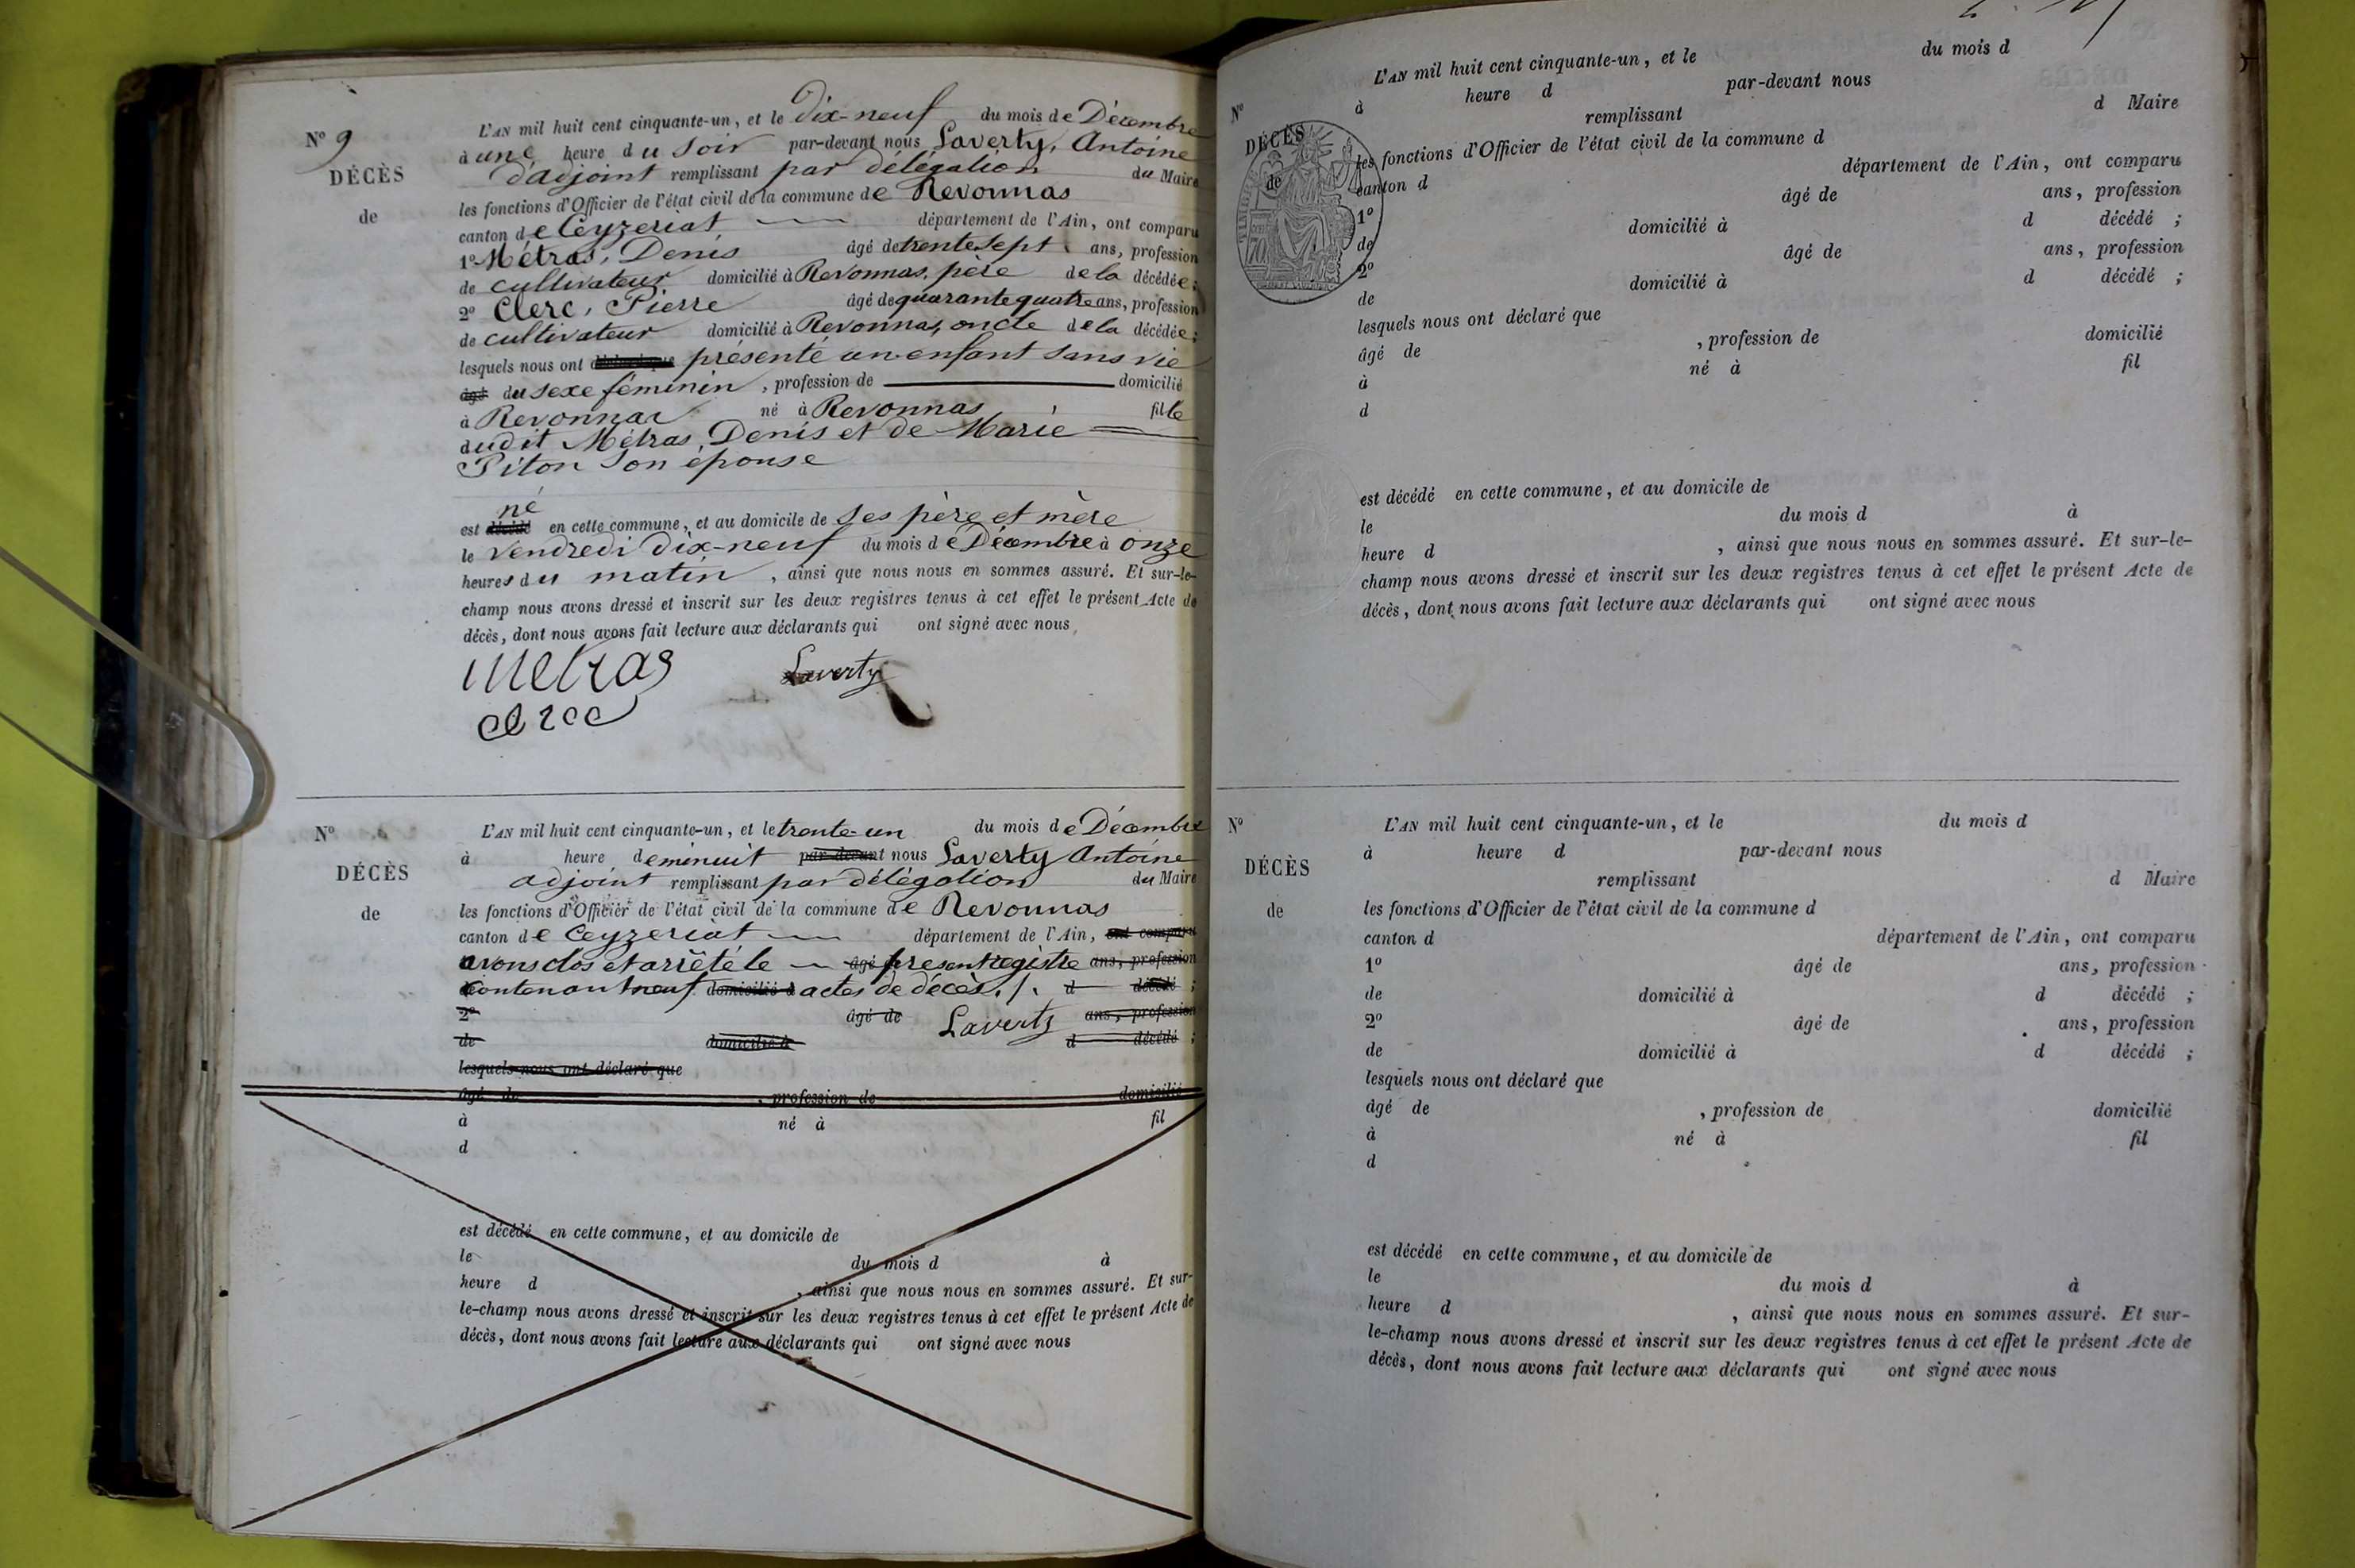 Nº 9
DÉCÈS
de
L'AN mil huit cent cinquante-un, et le Dix-neuf du mois de Décembre
à une heure du Soir par-devant nous Laverty, Antoine
d'adjoint remplissant par délégation du Maire
les fonctions d'Officier de l'état civil de la commune de Revonnas
canton de Ceyzeriat département de l'Ain, ont comparu
1º Métras, Denis âgé de trente sept ans, profession
de cultivateur domicilié à Revonnas, père de la décédée ;
2º Clerc, Pierre âgé de quarante quatre ans, profession
de cultivateur domicilié à Revonnas, oncle de la décédée ;
lesquels nous ont présenté un enfant sans vie
âgé du sexe féminin, profession de domicilié
à Revonnas né à Revonnas fille
dudit Métras, Denis et de Marie
Piton son épouse
né
est décédé en cette commune, et au domicile de ses père et mère
le vendredi dix-neuf du mois de Décembre à onze
heures du matin, ainsi que nous nous en sommes assuré. Et sur-le-
champ nous avons dressé et inscrit sur les deux registres tenus à cet effet le présent Acte de
décès, dont nous avons fait lecture aux déclarants qui ont signé avec nous
Metras Laverty
Nº
DÉCÈS
de
L'AN mil huit cent cinquante-un, et le trente-un du mois de Décembre
à heure de minuit par-devant nous Laverty Antoine
adjoint remplissant par délégation du Maire
les fonctions d'Officier de l'état civil de la commune de Revonnas
canton de Ceyzeriat département de l'Ain, ont comparu
avons clos et arrêté le âgé présent registre ans, profession
contenant neuf domicilié à actes de décès. d décédé ;
2º âgé de Laverty ans, profession
de domicilié à d décédé ;
lesquels nous ont déclaré que
âgé de , profession de domicilié
à né à fil
d
est décédé en cette commune, et au domicile de
le du mois d à
heure d , ainsi que nous nous en sommes assuré. Et sur-
le-champ nous avons dressé et inscrit sur les deux registres tenus à cet effet le présent Acte de
décès, dont nous avons fait lecture aux déclarants qui ont signé avec nous
Nº
DÉCÈS
de
L'AN mil huit cent cinquante-un, et le du mois d
à heure d par-devant nous
remplissant d Maire
les fonctions d'Officier de l'état civil de la commune d
canton d département de l'Ain, ont comparu
1º âgé de ans, profession
de domicilié à d décédé ;
2º âgé de ans, profession
de domicilié à d décédé ;
lesquels nous ont déclaré que
âgé de , profession de domicilié
à né à fil
d
est décédé en cette commune, et au domicile de
le du mois d à
heure d , ainsi que nous nous en sommes assuré. Et sur-le-
champ nous avons dressé et inscrit sur les deux registres tenus à cet effet le présent Acte de
décès, dont nous avons fait lecture aux déclarants qui ont signé avec nous
Nº
DÉCÈS
de
L'AN mil huit cent cinquante-un, et le du mois d
à heure d par-devant nous
remplissant d Maire
les fonctions d'Officier de l'état civil de la commune d
canton d département de l'Ain, ont comparu
1º âgé de ans, profession
de domicilié à d décédé ;
2º âgé de ans, profession
de domicilié à d décédé ;
lesquels nous ont déclaré que
âgé de , profession de domicilié
à né à fil
d
est décédé en cette commune, et au domicile de
le du mois d à
heure d , ainsi que nous nous en sommes assuré. Et sur-
le-champ nous avons dressé et inscrit sur les deux registres tenus à cet effet le présent Acte de
décès, dont nous avons fait lecture aux déclarants qui ont signé avec nous